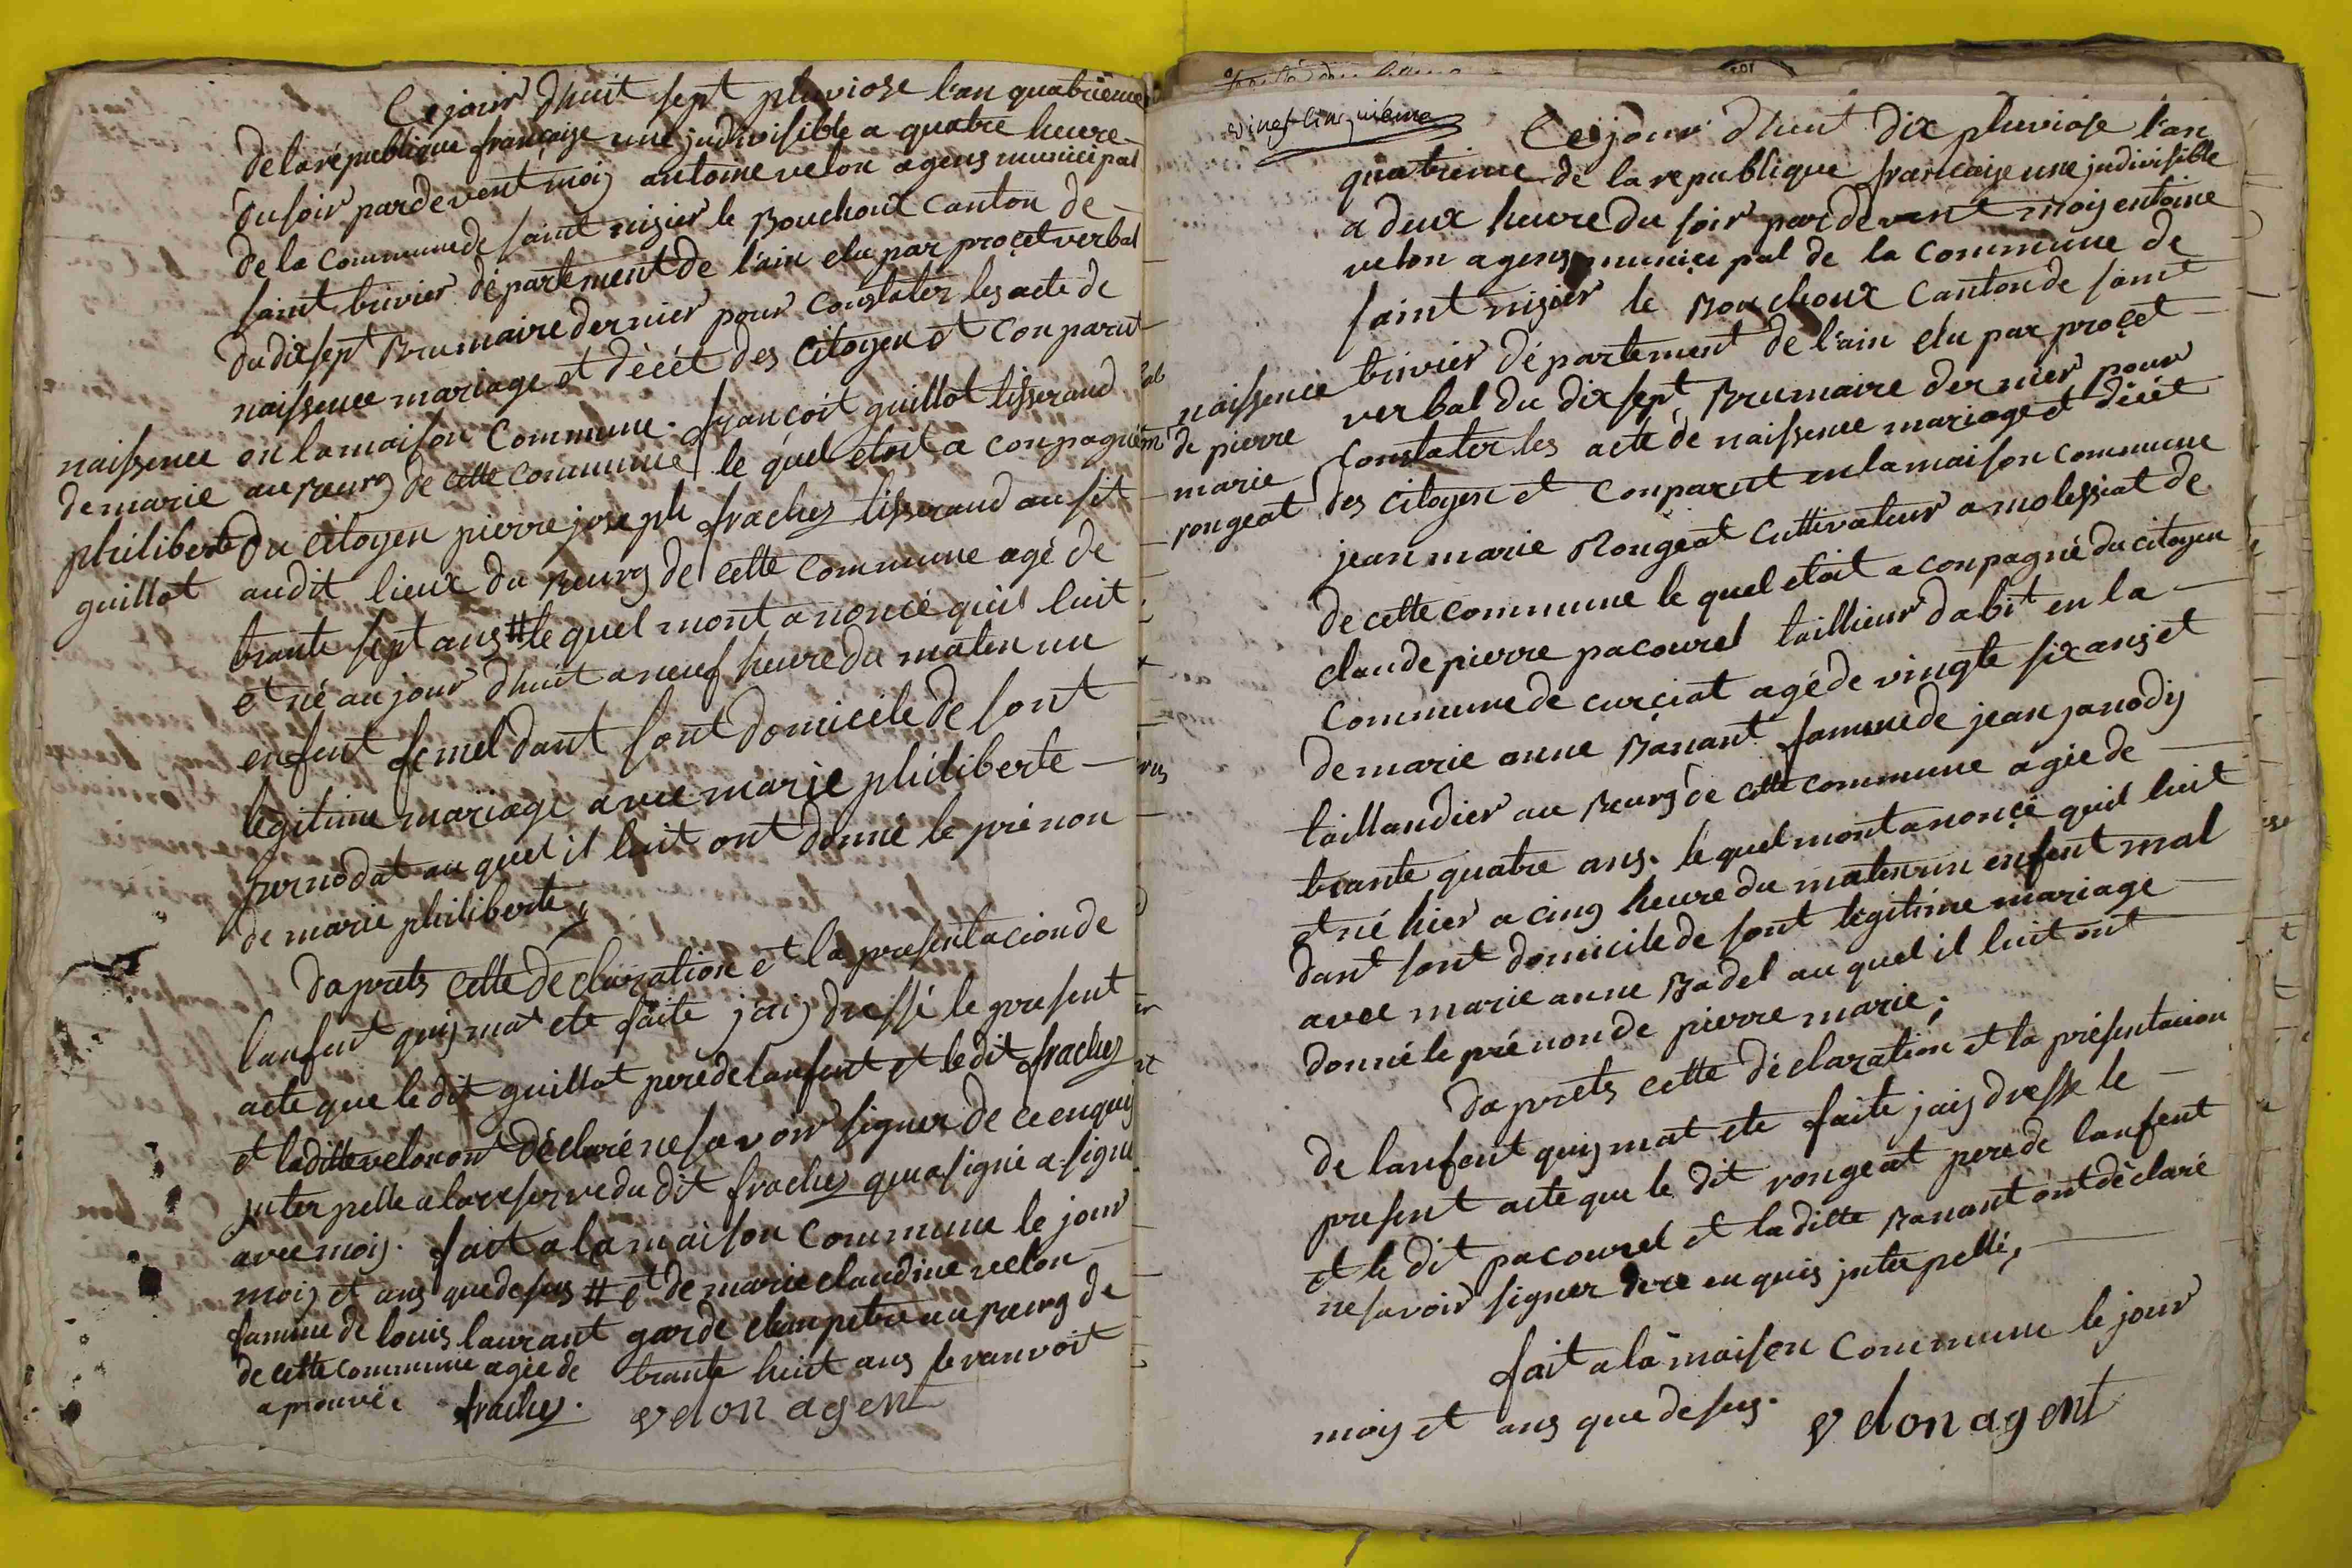 Ce jour dhuit sept pluviose l'an quatrieme
de la république française une judivisible a quatre heure
du soir pardevent moij antoine velon agens municipal
de la commune de saint nisier le Bouchoux canton de
saint trivier département de l'ain elu par proçet verbal
du dix sept Brumaire dernier pour constater les acte de
naissence mariage et décét des citoyen et conparut
en la maison commune. françoit guillot tisserand
au Bourg de cette commune le quel etoit a conpagné
du citoyen pierre joseph frachez tisserand ausit
audit lieux du Bourg de cette commune agé de
trante sept ans # le quel mont anoncé quil luit
et né au jour dhuit a neuf heure du maten un
enfent femel dant sont domicile de sont
légitime mariage avec marie philiberte
pernodat au quel il luit ont donné le prénon
de marie philiberte,
daprets cette déclaration et la presentacion de
lanfent quij mat ete faite jaij dressé le present
acte que le dit guillot pere de lanfent et le dit frachez
et laditte velon ont déclaré ne savoir signer de ce enquij
juterpelle a la reserve du dit frachez qui a signé a signé
avec moij. fait a la maison commune le jour
moij et ans que desus # et de marie claudine velon
famme de louis laurant garde chanpetre au Bourg de
de cette commune agée de trante huit ans le ranvoit
aprouvé. frachez. velon agent
naissence
de marie
philiberte
guillot
vingt cinquième
Ce jour dhuit dix pluviose l'an
quatrieme de la republique francaise une judivisible
a deux heure du soir pardevent moij entoine
velon agens municipal de la commune de
saint nisier le Bouchoux canton de saint
trivier département de l'ain elu par proçet
verbal du dix sept Brumaire dernier pour
constater les acte de naissence mariage et décét
des citoyen et conparut en la maison commune
jean marie Rongeat cultivateur a molessiat de
de cette commune le quel etoit a conpagné du citoyen
claude pierre pacouret taillieur dabit en la
commune de curciat agé de vingte six ans et
de marie anne Banant famme de jean janodij
taillandier au Bourg de cette commune agée de
trante quatre ans. le quel mont anonçé quil luit
et né hier a cinq heure du maten un enfent mal
dant sont domicile de sont légitime mariage
avec marie anne Badel au quel il luit ont
donné le prénon de pierre marie;
daprets cette déclaration et la présentacion
de lanfent quij mat ete faite jaij dressé le
present acte que le dit rongeat pere de lanfent
et le dit pacouret et laditte Banant ont déclaré
ne savoir signer de ce en quij juterpellé,
fait a la maison commune le jour
moij et ans que desus. velon agent
naissence
de pierre
marie
rongeat